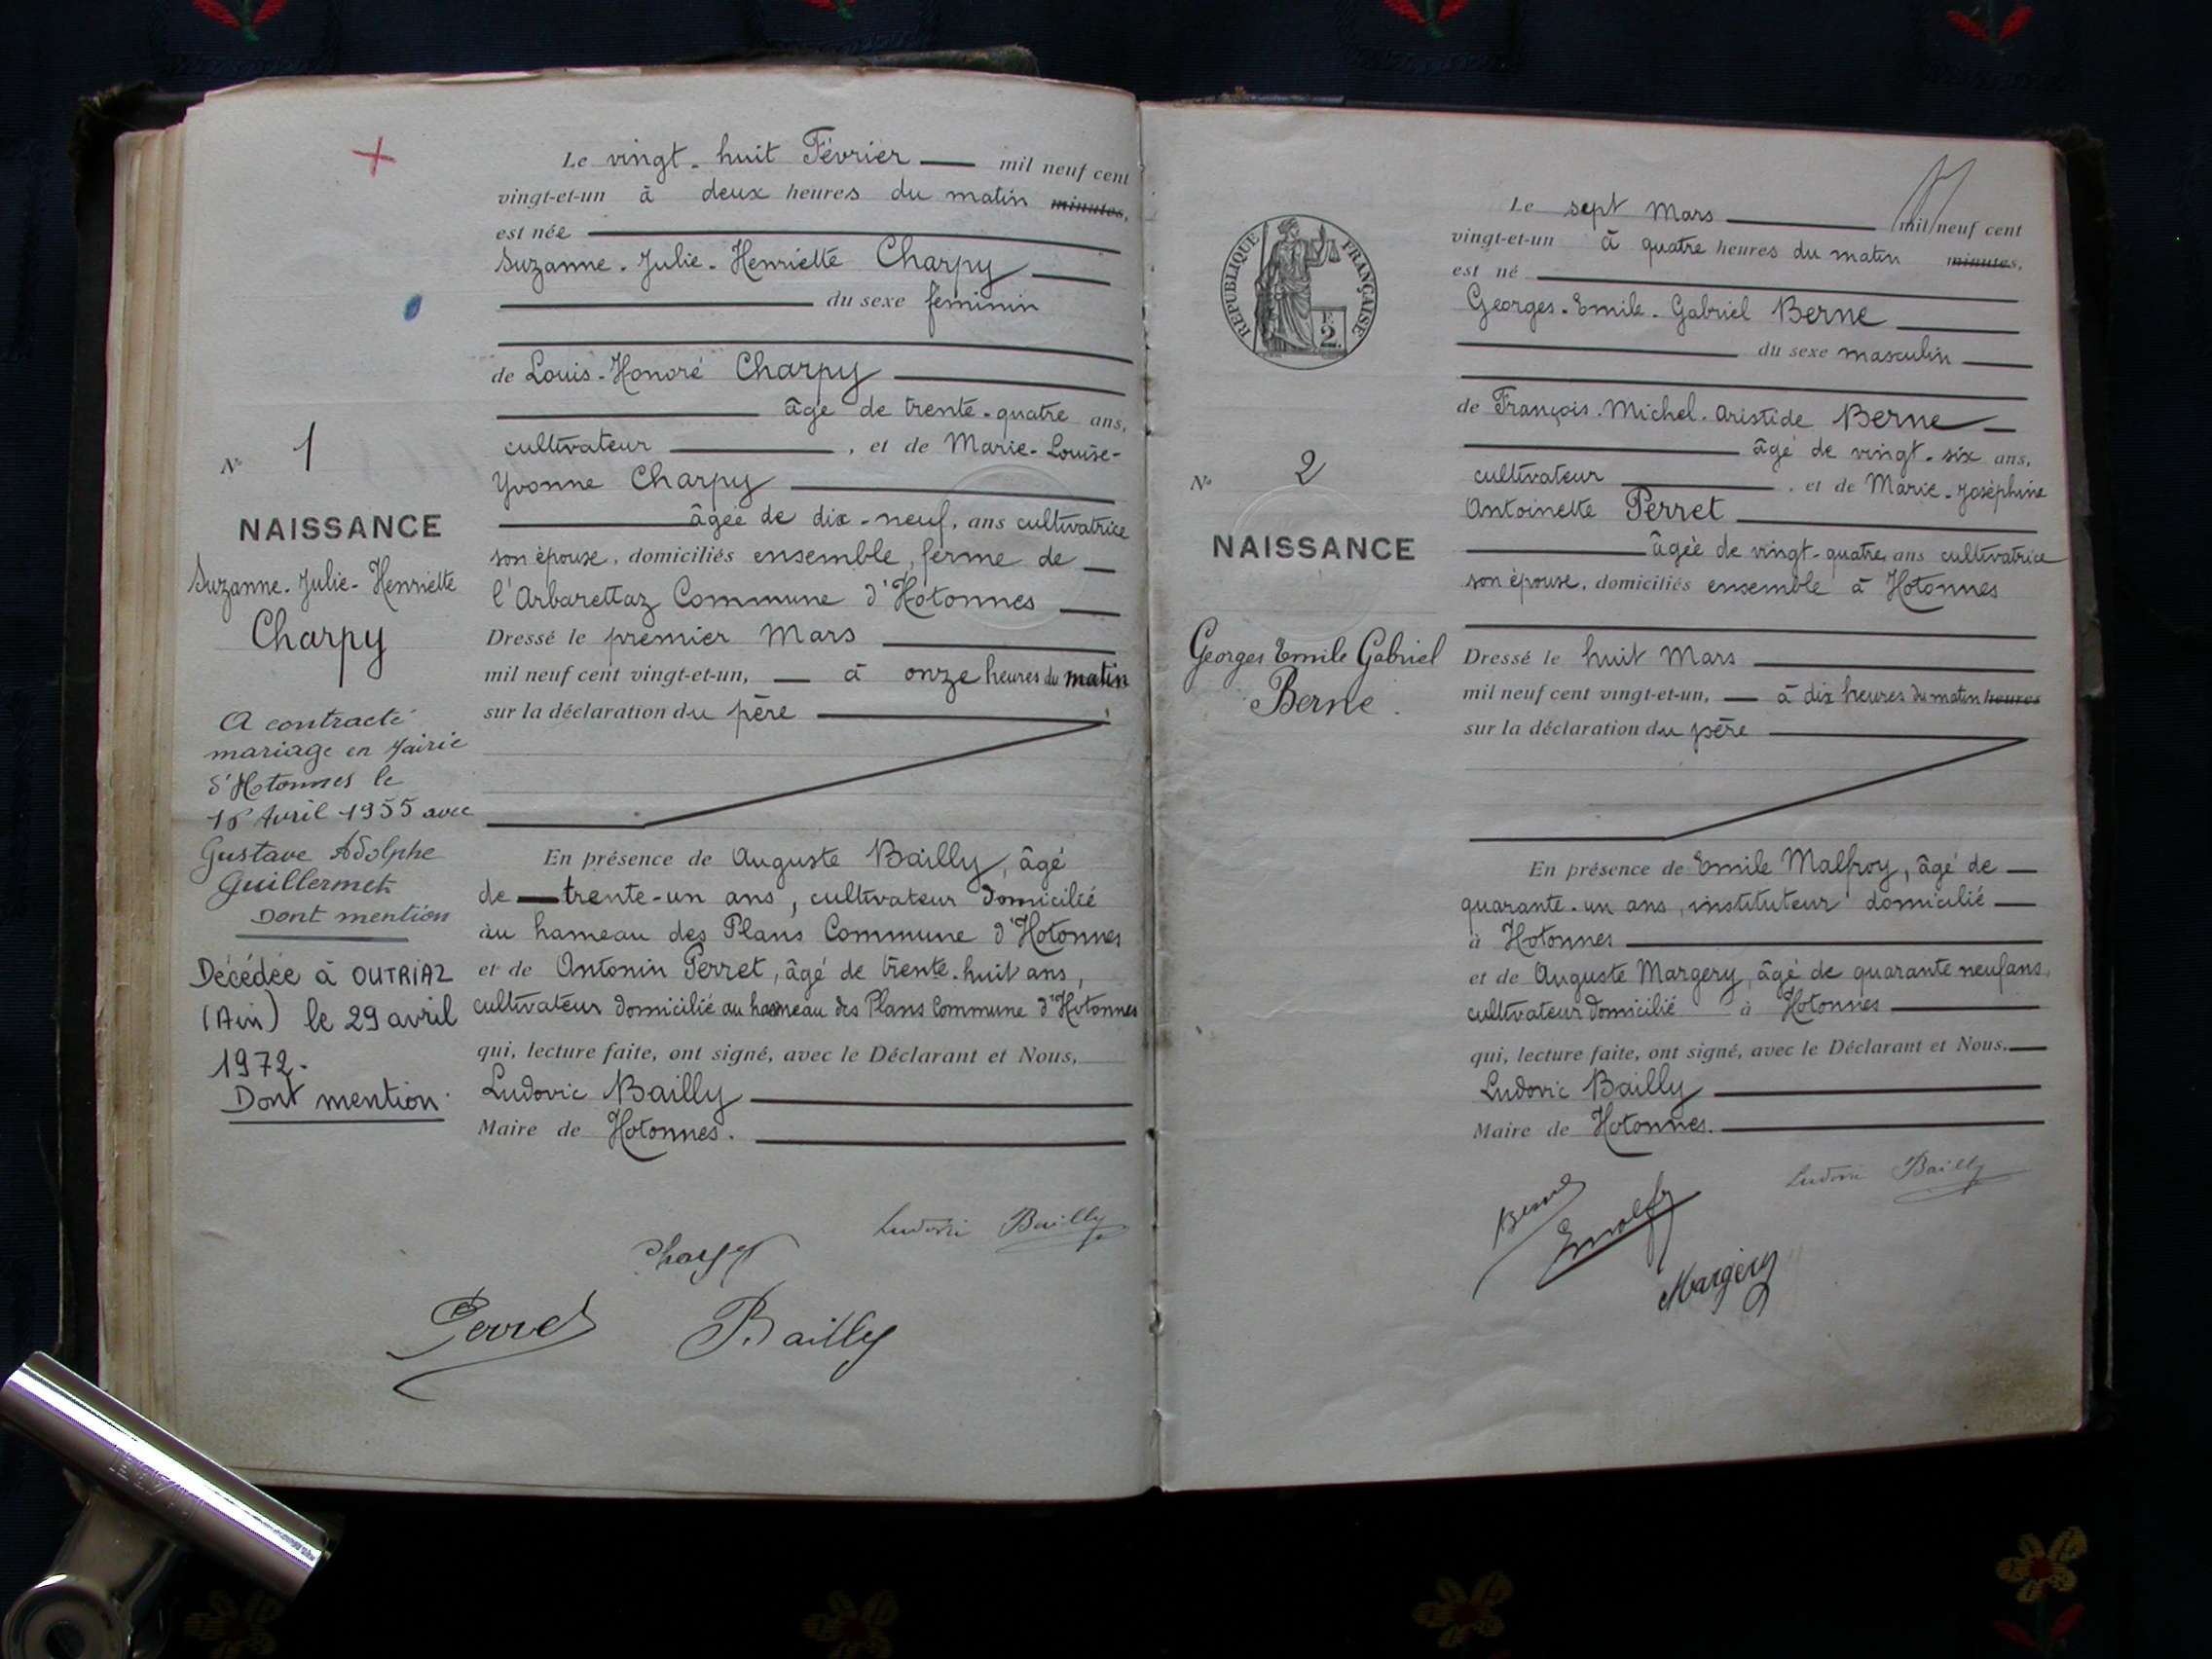 Le vingt-huit Février mil neuf cent
vingt-et-un à deux heures du matin minutes,
est née
Suzanne-Julie-Henriette Charpy
du sexe féminin
de Louis-Honoré Charpy
âgé de trente-quatre ans,
cultivateur, et de Marie-Louise-
Yvonne Charpy
âgée de dix-neuf, ans cultivatrice
son épouse, domiciliés ensemble, ferme de
l'Arbarettaz Commune d'Hotonnes
Dressé le premier Mars
mil neuf cent vingt-et-un, à onze heures du matin
sur la déclaration du père
En présence de Auguste Bailly, âgé
de trente-un ans, cultivateur domicilié
au hameau des Plans Commune d'Hotonnes
et de Antonin Perret, âgé de trente-huit ans,
cultivateur domicilié au hameau des Plans Commune d'Hotonnes
qui, lecture faite, ont signé, avec le Déclarant et Nous,
Ludovic Bailly
Maire de Hotonnes.
Ludovic Bailly
Charpy
Perret
Bailly
No 1
NAISSANCE
Suzanne-Julie-Henriette
Charpy
A contracté
mariage en Mairie
d'Hotonnes le
Avril 1955 avec
Gustave Adolphe
Guillermet
Dont mention
Décédée à OUTRIAZ
(Ain) le 29 avril
1972.
Dont mention
RÉPUBLIQUE FRANÇAISE
2
No 2
NAISSANCE
Georges Emile Gabriel
Berne.
Le sept Mars mil neuf cent
vingt-et-un à quatre heures du matin minutes,
est né
Georges-Emile-Gabriel Berne
du sexe masculin
de François-Michel-Aristide Berne
âgé de vingt-six ans,
cultivateur, et de Marie-Joséphine
Antoinette Perret
âgée de vingt-quatre ans cultivatrice
son épouse, domiciliés ensemble à Hotonnes
Dressé le huit Mars
mil neuf cent vingt-et-un, à dix heures du matin heures
sur la déclaration du père
En présence de Emile Malfroy, âgé de
quarante-un ans, instituteur domicilié
à Hotonnes
et de Auguste Margery, âgé de quarante neuf ans,
cultivateur domicilié à Hotonnes
qui, lecture faite, ont signé, avec le Déclarant et Nous,
Ludovic Bailly
Maire de Hotonnes.
Ludovic Bailly
Berne
Margery